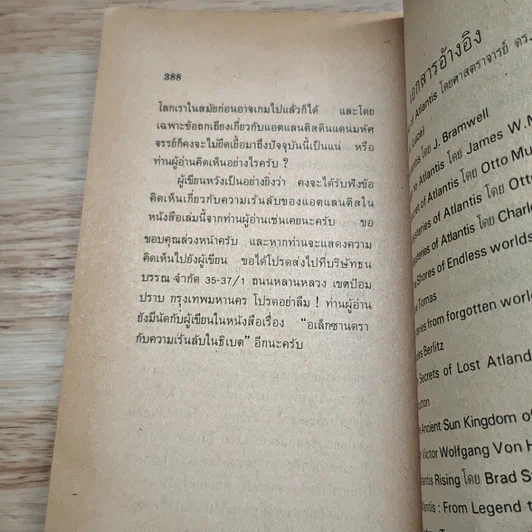 388
โลกเราในสมัยก่อนอาจเกมไปแล้วก็ได้ และโดย
เฉพาะข้อถกเถียงเกี่ยวกับแอตแลนติสดินแดนมหัศ
จรรย์ก็คงจะไม่ยืดเยื้อมาถึงปัจจุบันนี้เป็นแน่ หรือ
ท่านผู้อ่านคิดเห็นอย่างไรครับ ?
ผู้เขียนหวังเป็นอย่างยิ่งว่า คงจะได้รับฟังข้อ
คิดเห็นเกี่ยวกับความเร้นลับของแอตแลนติสใน
หนังสือเล่มนี้จากท่านผู้อ่านเช่นเคยนะครับ ขอ
ขอบคุณล่วงหน้าครับ และหากท่านจะแสดงความ
คิดเห็นไปยังผู้เขียน ขอได้โปรดส่งไปที่บริษัทธน
บรรณ จำกัด 35-37/1 ถนนหลานหลวง เขตป้อม
ปราบ กรุงเทพมหานคร โปรดอย่าลืม ! ท่านผู้อ่าน
ยังมีนัดกับผู้เขียนในหนังสือเรื่อง “อเล็กซานดรา
กับความเร้นลับในธิเบต” อีกนะครับ
เอกสารอ้างอิง
Atlantis โดยศาสตราจารย์ ดร.
Atlantis โดย J. Bramwell
to Atlantis โดย James W.
of Atlantis โดย Otto
of Atlantis โดย
of Atlantis โดย
Shores of Endless worlds
Tomas
from forgotten world
Berlitz
Secrets of Lost Atland
Ancient Sun Kingdom of
Victor Wolfgang Von
Rising โดย Brad
: From Legend